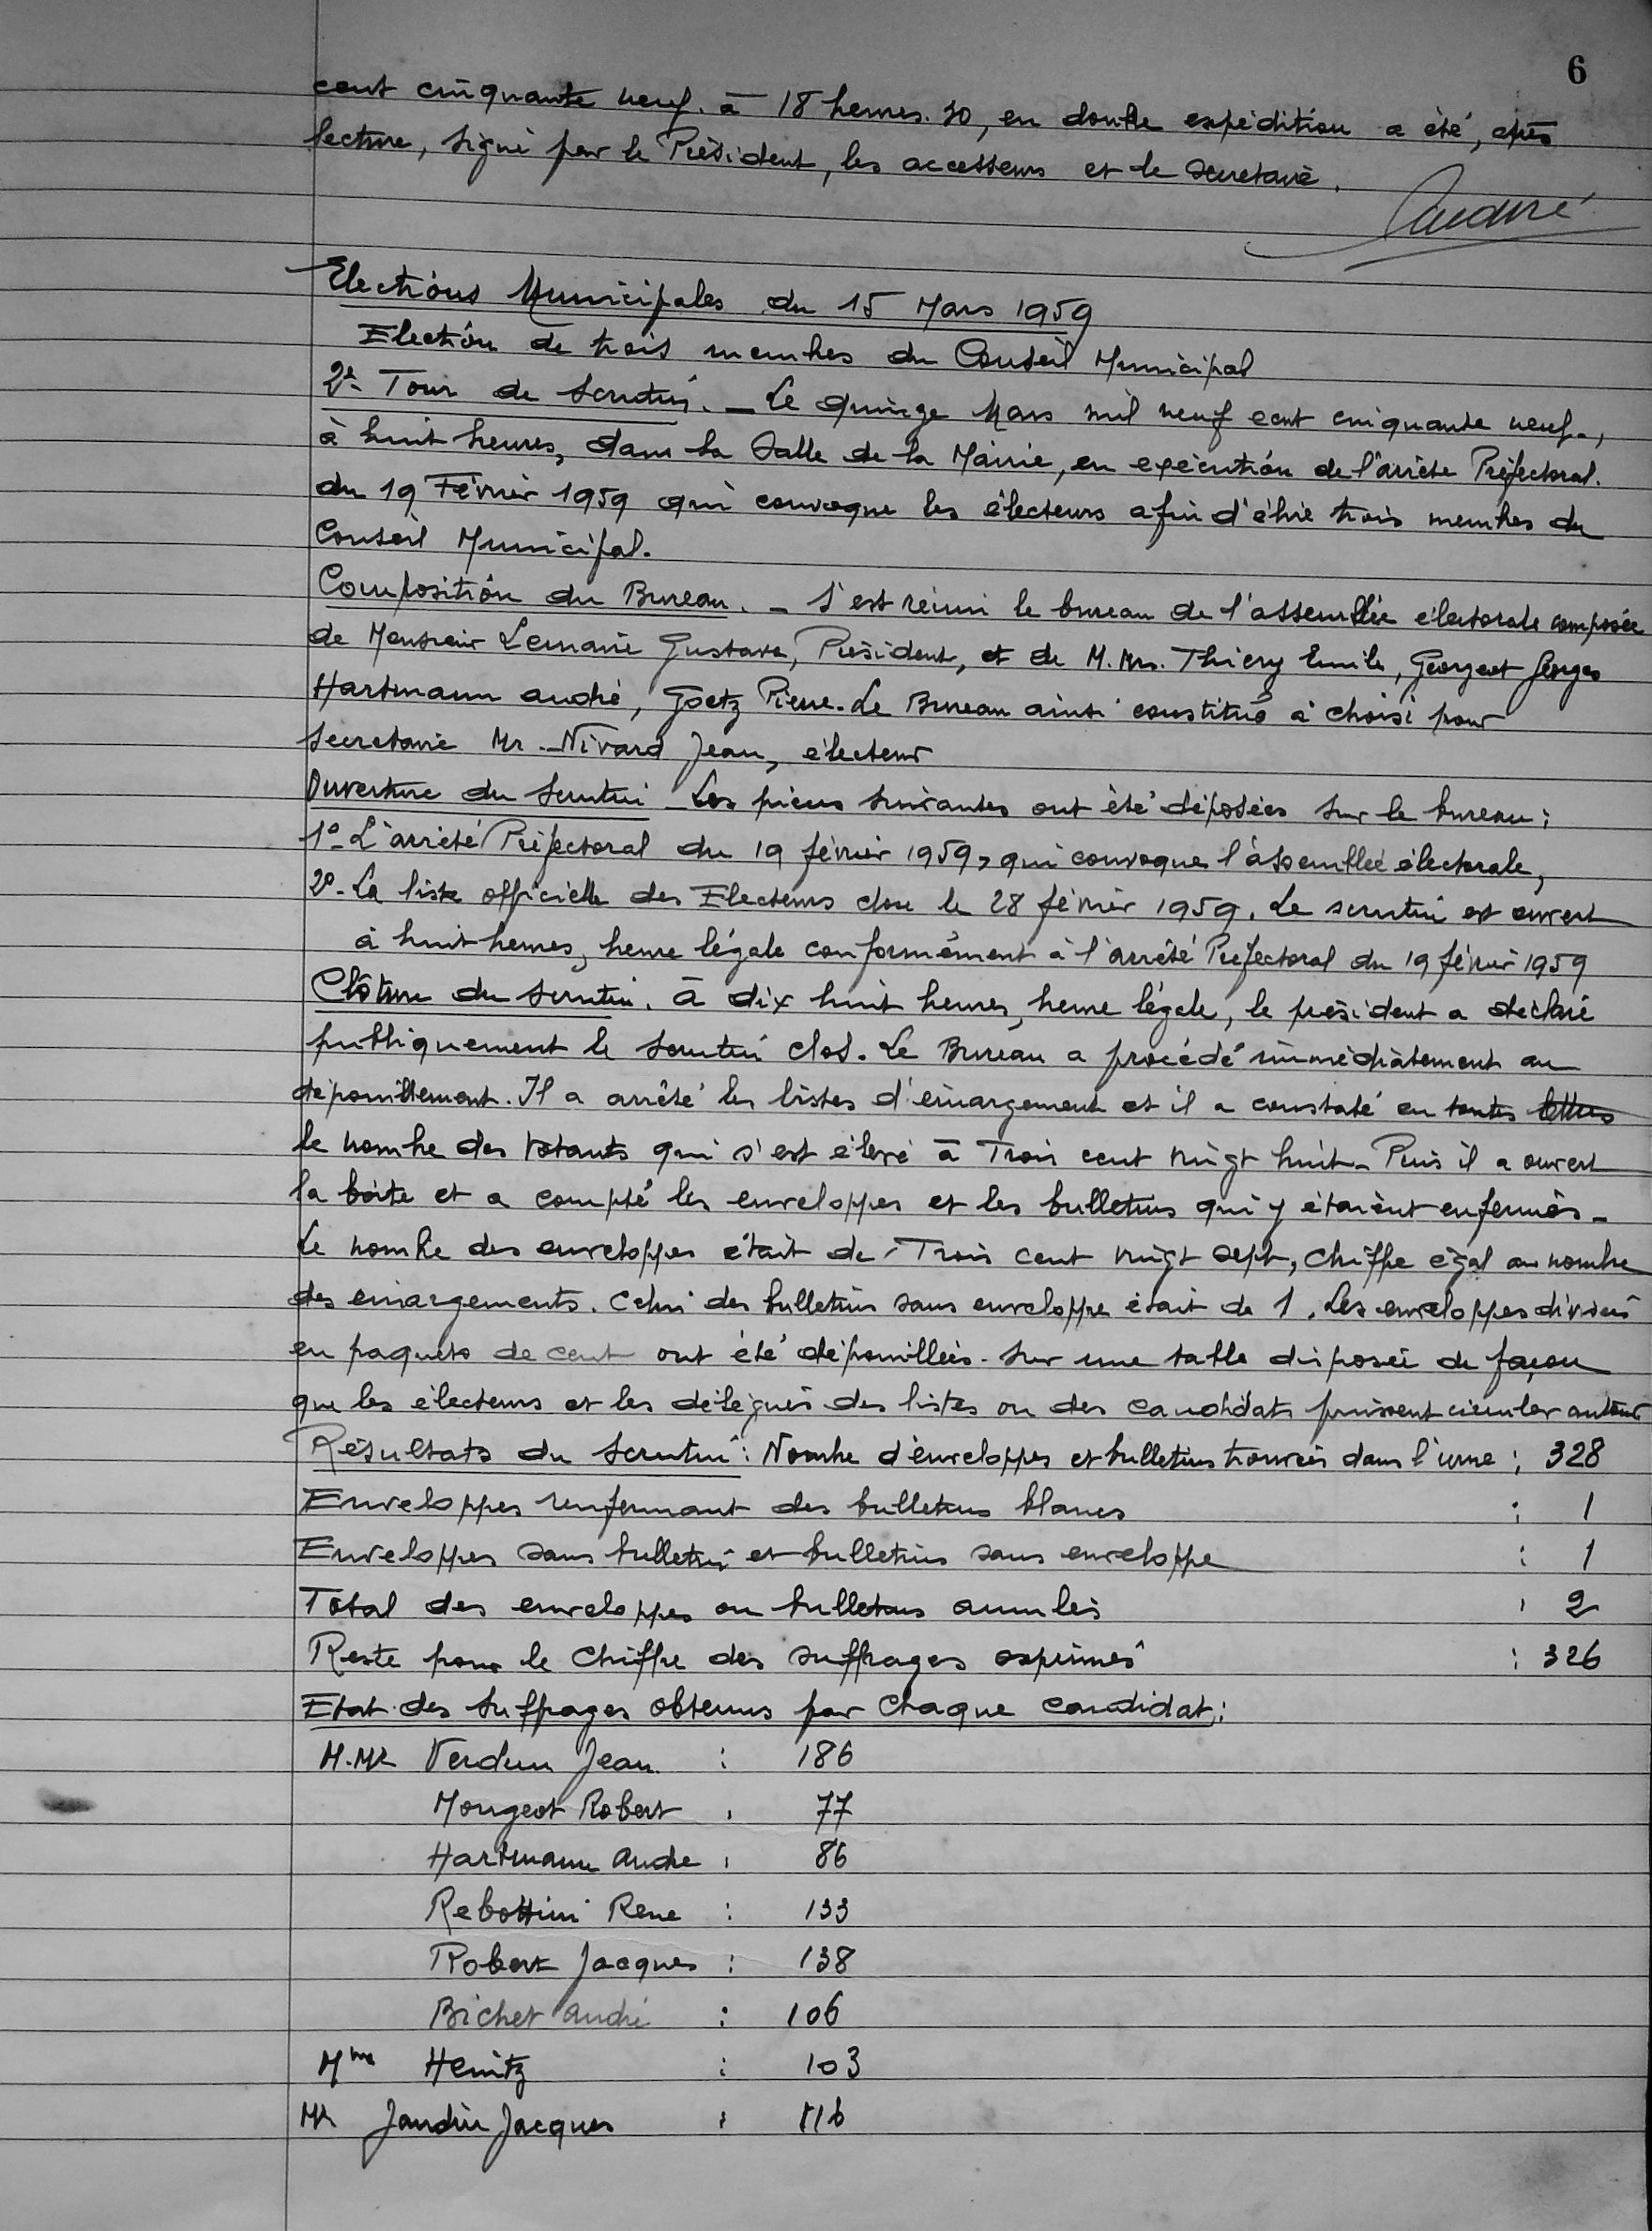 6
cent cinquante neuf. à 18 heures. 30, en double expédition a été, après
lecture, signé par le Président, les accesseurs et le secretaire.
Elections Municipales du 15 Mars 1959
Election de trois membres du Conseil Municipal
2e Tour de scrutin. - Le quinze Mars mil neuf cent cinquante neuf.,
à huit heures, dans la Salle de la Mairie, en exécution de l'arrête Préfectoral.
du 19 Février 1959 qui convoque les électeurs afin d'élire trois membres du
Conseil Municipal.
Composition du Bureau. - S'est réuni le bureau de l'assemblée électorale composée
de Monsieur Lemaire Gustave, Président, et de M. Mrs. Thiery Emile, Georgeot Georges
Hartmann andré, Goetz Pierre. Le Bureau ainsi constitué à choisi pour
Secretaire Mr. Nivard Jean, électeur
Ouverture du scrutin - Les pièces suivantes ont été déposées sur le bureau :
1º- L'arrêté Préfectoral du 19 février 1959, qui convoque l'assemblée électorale,
2º- La liste officielle des Electeurs close le 28 février 1959. Le scrutin est ouvert
à huit heures, heure légale conformément à l'arrêté Préfectoral du 19 février 1959
Clôture du scrutin. à dix huit heures, heure légale, le président a déclaré
publiquement le scrutin clos. Le Bureau a procédé immédiatement au
dépouillement. Il a arrêté les listes d'émargement et il a constaté en toutes lettres
le nombre des votants qui s'est élevé à Trois cent vingt huit - Puis il a ouvert
la boite et a compté les enveloppes et les bulletins qui y étaient enfermés -
Le nombre des enveloppes était de Trois cent vingt sept, chiffre égal au nombre
des émargements. Celui des bulletins sans enveloppe était de 1. Les enveloppes divisés
en paquets de cent ont été dépouillées. sur une table disposée de façon
que les électeurs et les délégués des listes ou des candidats puissent circuler autour
Résultats du Scrutin : Nombre d'enveloppes et bulletins trouvés dans l'urne : 328
Enveloppes renfermant des bulletins blancs : 1
Enveloppes sans bulletin et bulletins sans enveloppe : 1
Total des enveloppes ou bulletins annulés : 2
Reste pour le Chiffre des suffrages exprimés : 326
Etat des suffrages obtenus par Chaque candidat :
M.Mr Verdun Jean : 186
Mougeot Robert : 77
Hartmann andre : 86
Rebottini Rene : 133
Robert Jacques : 138
Bichet andré : 106
Mme Heintz : 103
Mr Jandin Jacques : 116